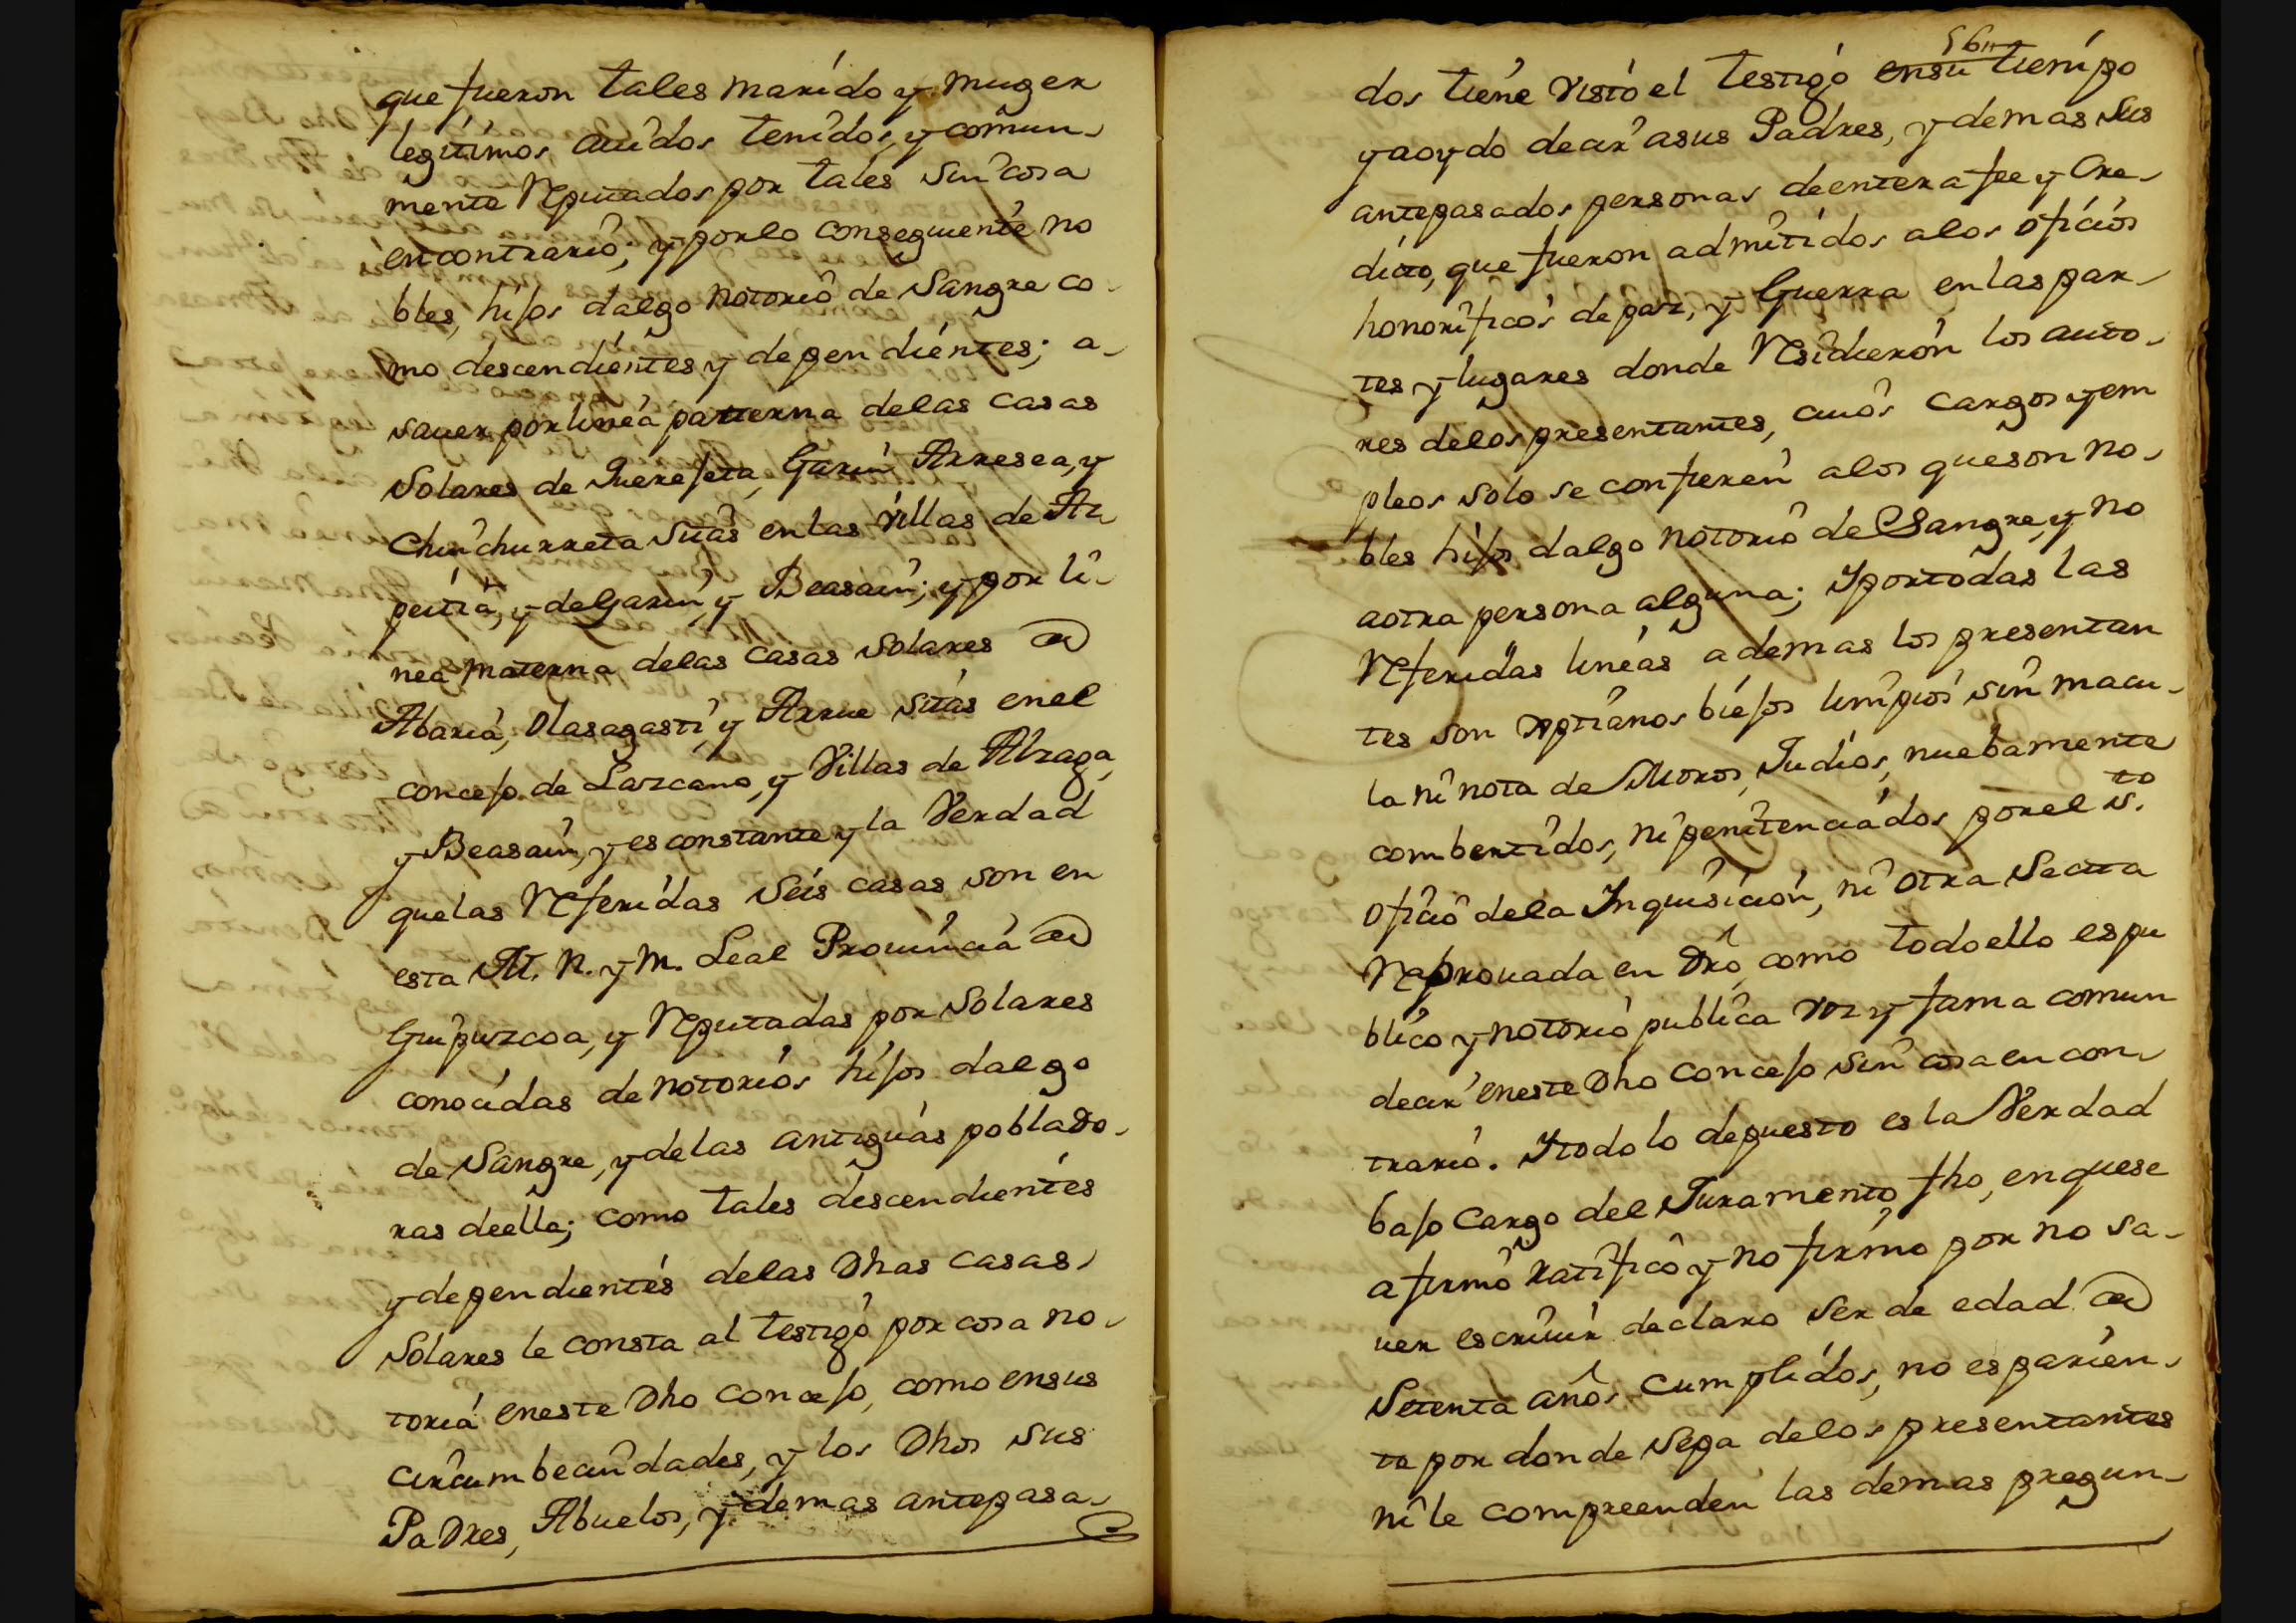 que fueron tales marido y muger
legitimos auidos tenidos, y comun-
mente Reputados por tales sin cosa
en contrario; y por lo conseguiente no
bles, hijos dalgo notorio de Sangre co-
mo descendientes y dependientes; a-
sauer por linea patterna delas casas
Solares de Querejeta, Garin Arresea, y
Chinchurreta sitas en las Villas de Az
peitia, y de Garin, y Beasain; y por li-
nea materna delas casas Solares de
Abaria, Olasagasti, y Arrue sitas en el
concejo de Lazcano, y Villas de Alzaga,
y Beasain, y es constante y la Verdad
que las Referidas seis casas son en
esta M. N. y M. Leal Prouincia de
Guipuzcoa, y Reputadas por Solares
conocidas de notorios hijos dalgo
de Sangre, y delas antiguas poblado-
ras deella; como tales descendientes
y dependientes delas Dhas casas
Solares le consta al testigo por cosa no-
toria en este Dho concejo, como ensus
circumbecindades, y los Dhos sus
Padres, Abuelos, y demas antepasa-
56
dos tiene visto el testigo ensu tiempo
y a oydo decir asus Padres, y demas sus
antepasados personas de entera fee y Cre-
dicto, que fueron admitidos alos oficios
honorificos de paz, y Guerra en las par-
tes y lugares donde Residieron los auto-
res delos presentantes, cuios cargos y em
pleos solo se confieren alos que son no-
bles hijos dalgo notorio de Sangre, y no
aotra persona alguna; Y por todas las
Referidas lineas ademas los presentan
tes son xptianos biejos limpios sin macu-
la ni nota de Moros, Judios, nuebamente
combertidos, ni penitenciados por el S.to
Oficio dela Inquisicion, ni otra Secta
Reprouada en Dro, como todo ello es pu
blico y notorio publica voz y fama comun
decir en este Dho Concejo sin cosa en con-
trario. Y todo lo depuesto es la Verdad
bajo Cargo del Juramento fho, en que se
afirmo ratifico y no firmo por no sa-
uer escriuir declaro Ser de edad de
Setenta años Cumplidos, no es parien-
te por donde Sepa delos presentantes
ni le compreenden las demas pregun-